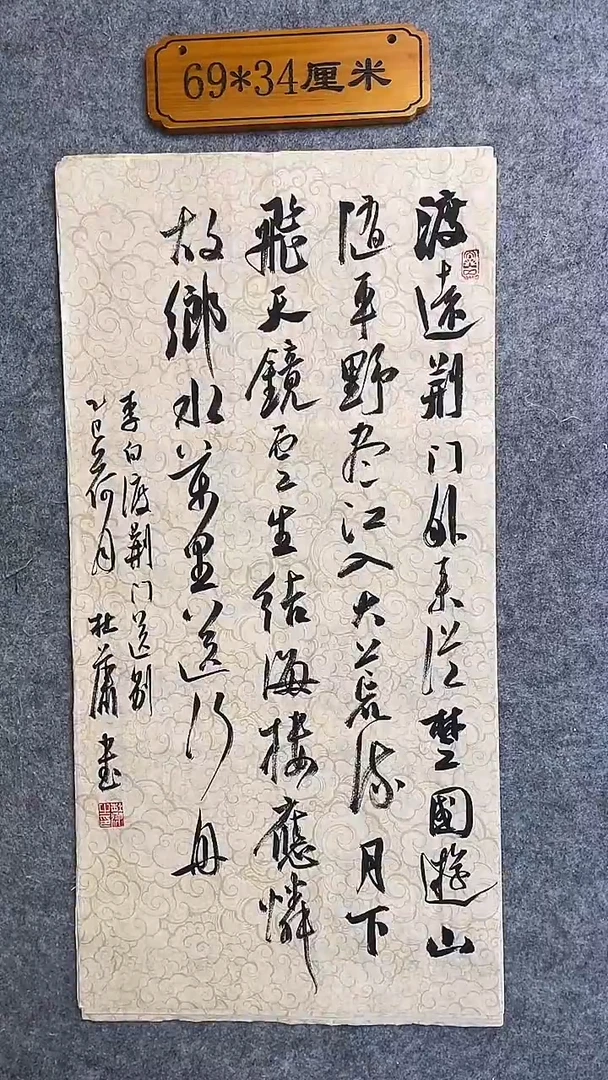 69*34厘米
渡遠荆门外来從楚國遊山
随平野尽江入大荒流月下
飛天鏡雲生結海樓應憐
故鄉水萬里送行舟
李白渡荆门送别
乙巳荷月 杜蕭書